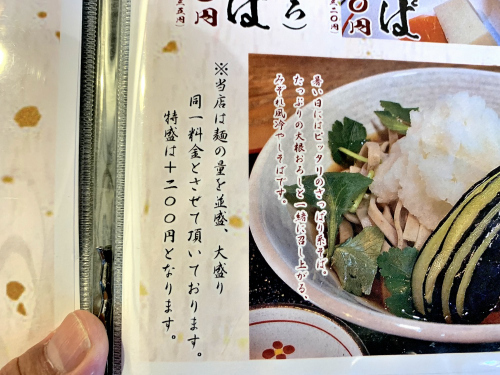 ば
０円
ろ）
そば
※当店は麺の量を並盛、大盛り
同一料金とさせて頂いております。
特盛は＋二〇〇円となります。
暑い日にはピッタリのさっぱり系そば。
たっぷりの大根おろしと一緒に召し上がる、
みぞれ風冷やしそばです。